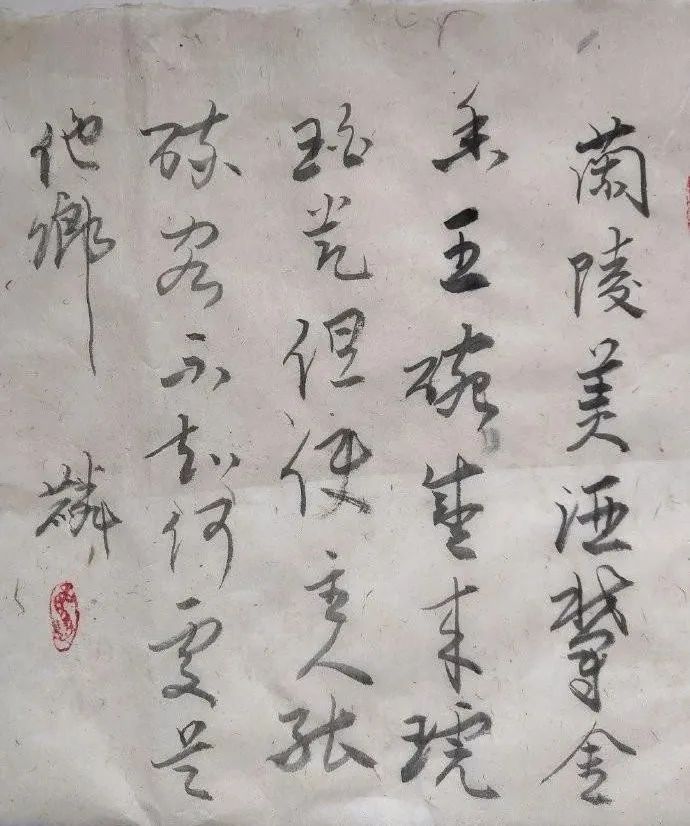 蘭陵美酒鬱金
香玉碗盛来琥
珀光但使主人能
醉客不知何處是
他鄉 麟